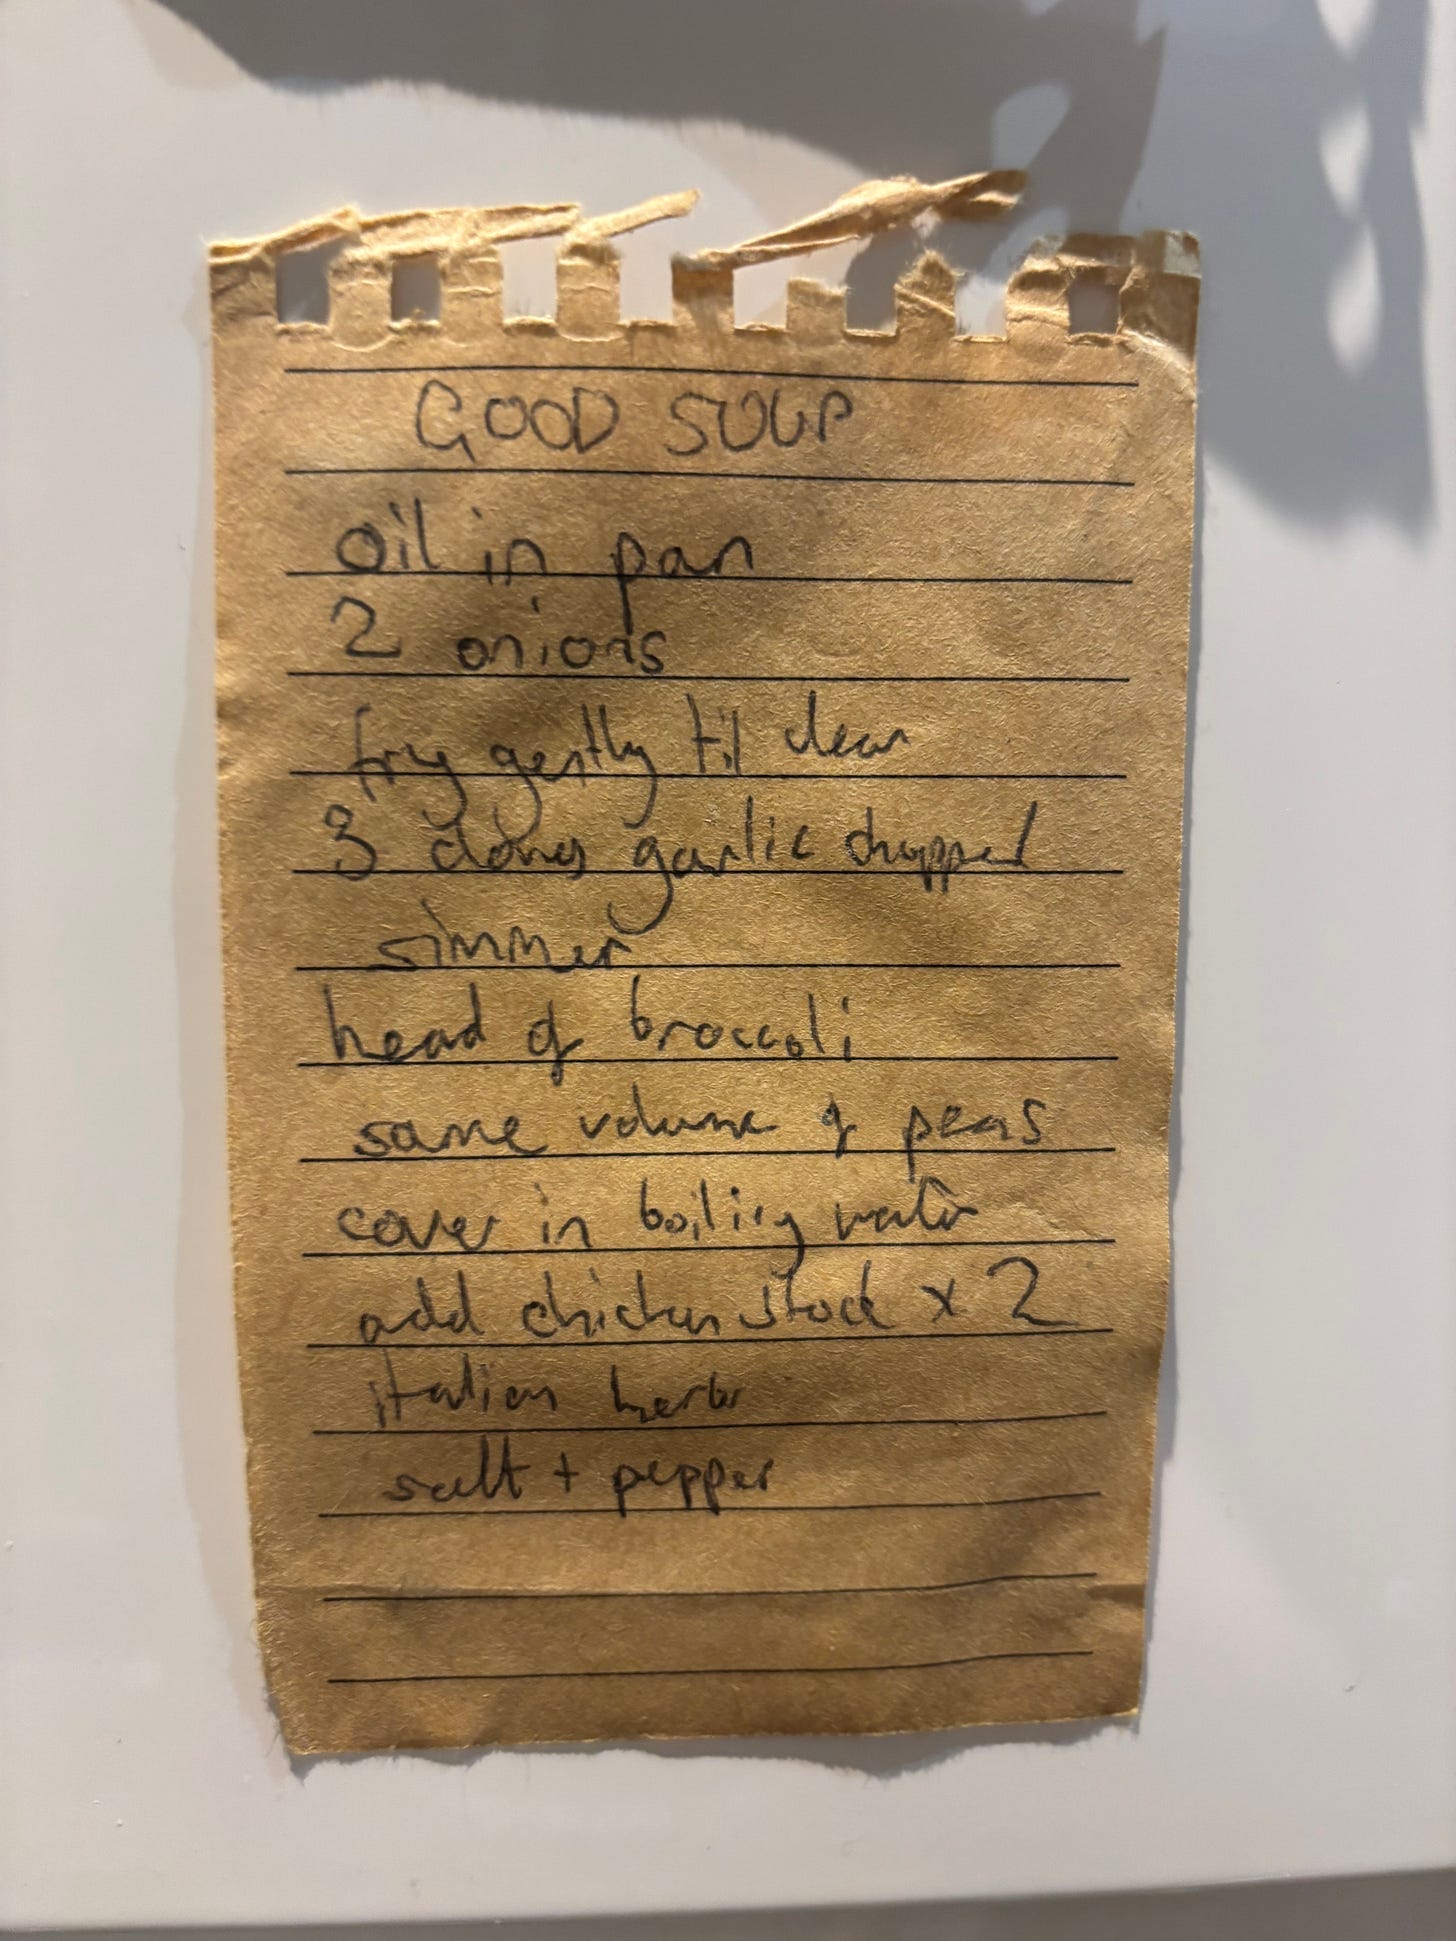 GOOD SOUP
oil in pan
2 onions
fry gently til clear
3 cloves garlic chopped
simmer
head of broccoli
same volume of peas
cover in boiling water
add chicken stock x 2
italian herbs
salt + pepper